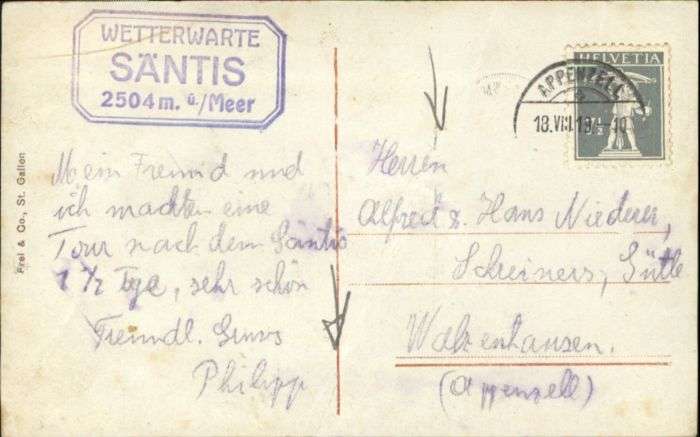 WETTERWARTE
SÄNTIS
2504 m. ü./Meer
HELVETIA
APPENZELL
18.VIII.19
7½
Frei & Co., St. Gallen
Mein Freund und
ich machten eine
Tour nach dem Säntis
1 1/2 Tge, sehr schön
Freundl. Gruss
Philipp
Herren
Alfred & Hans Niederer,
Schreiners,
Walzenhausen.
(Appenzell)